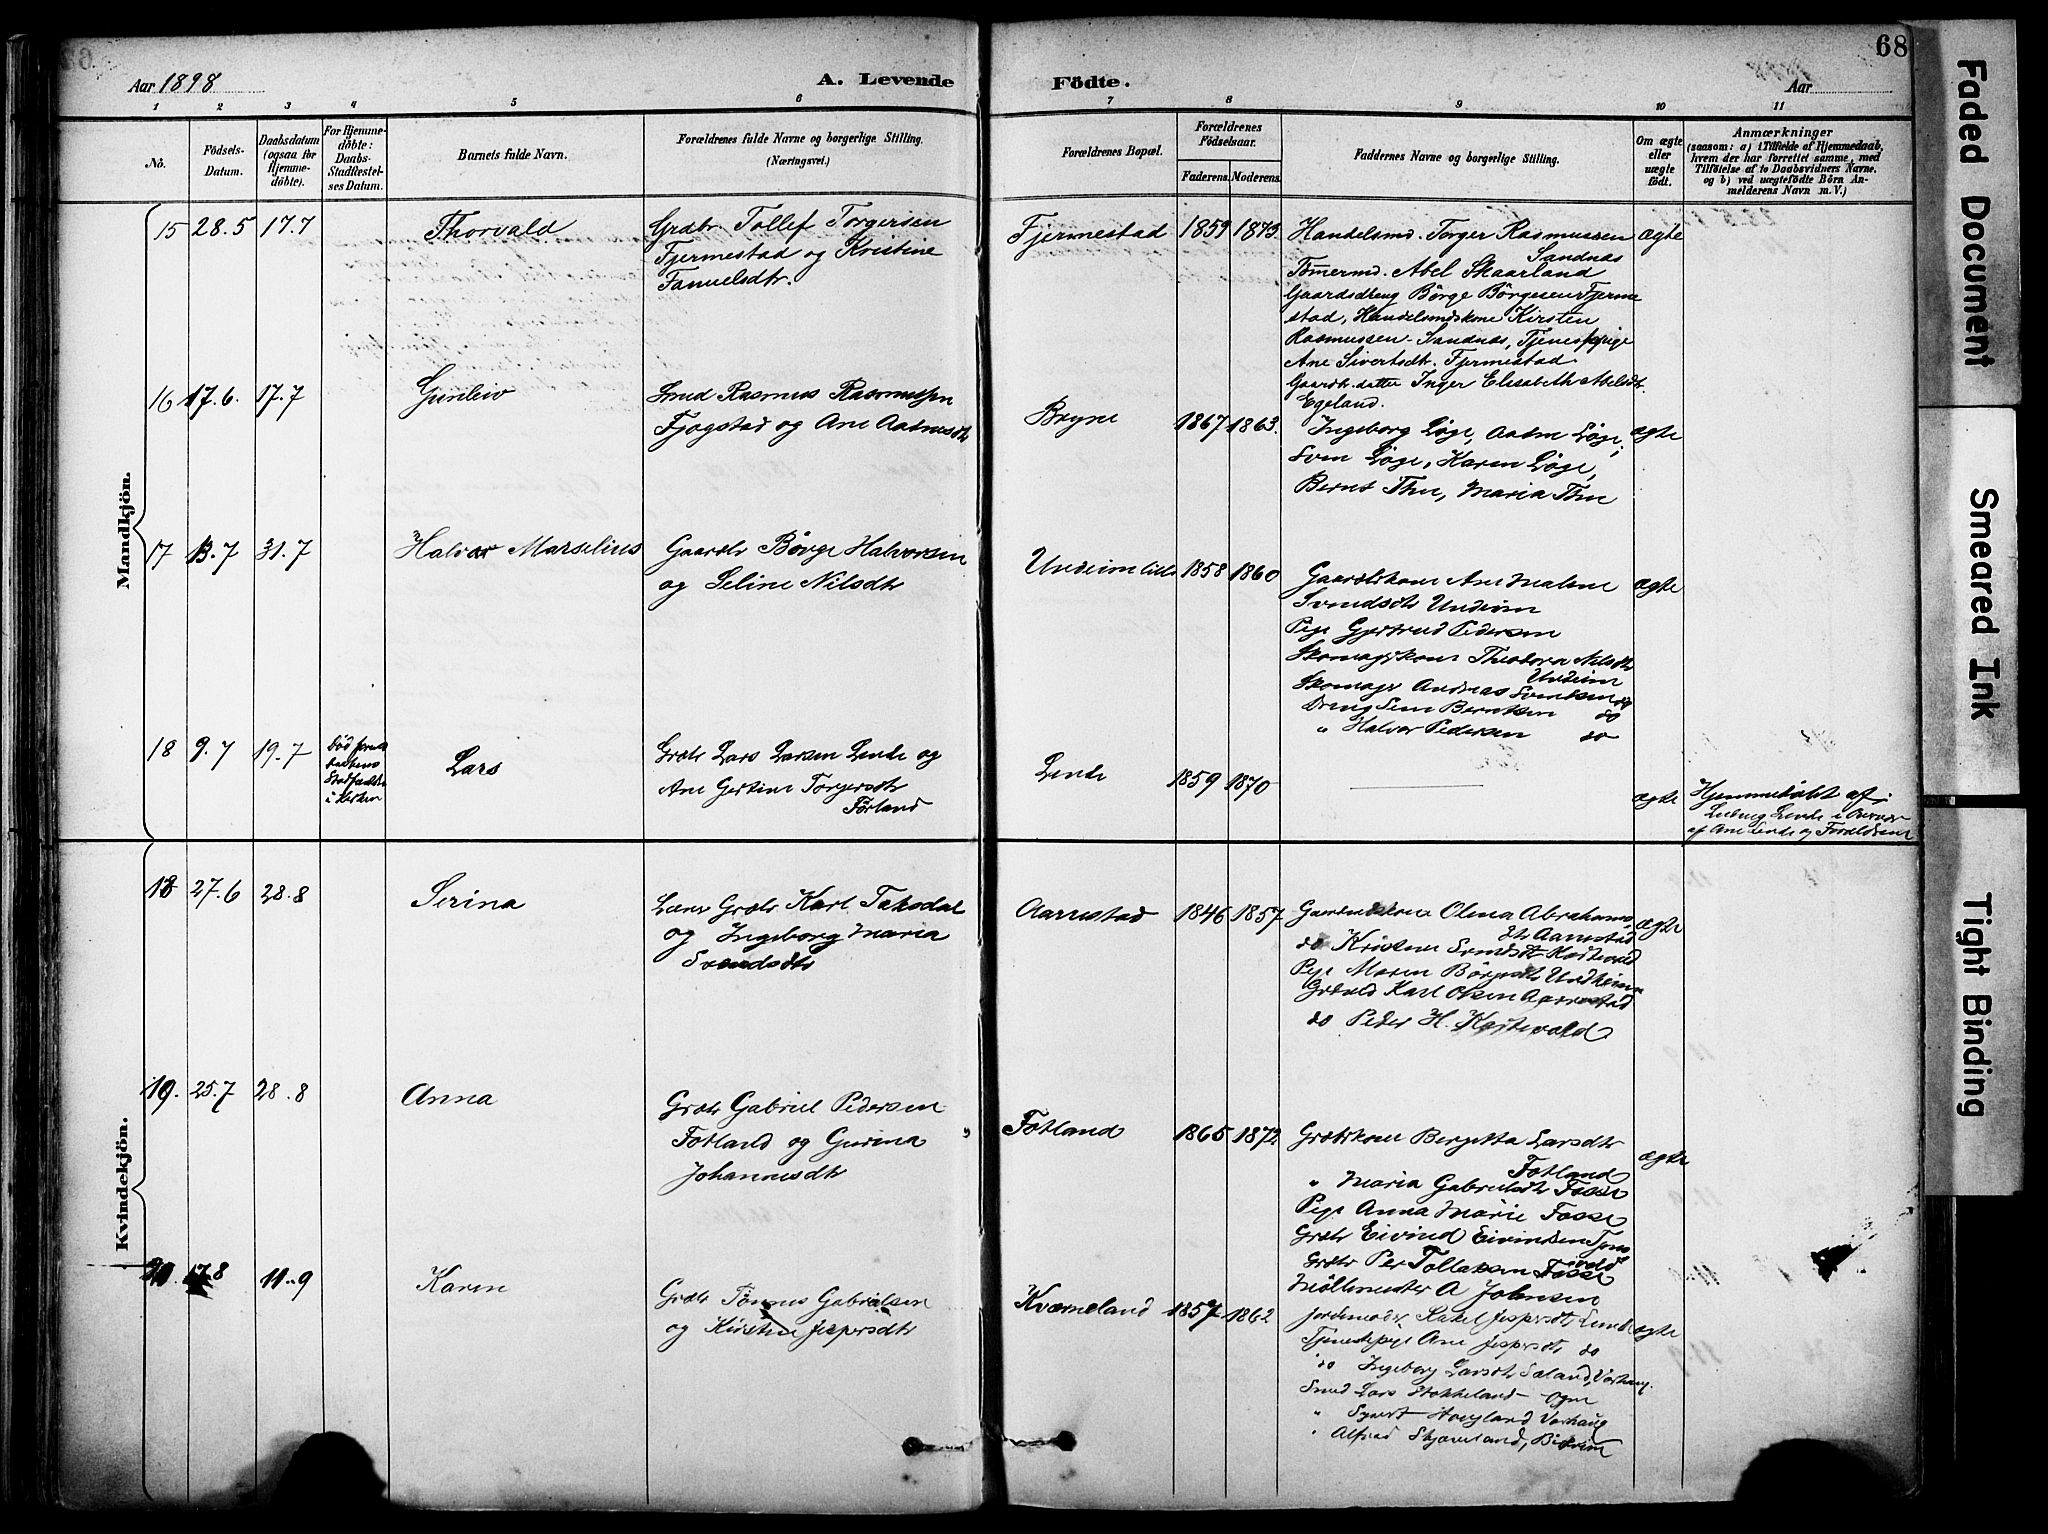 68
Aar 1898 A. Levende Födte. Aar
1 2 3 4 5 6 7 8 9 10 11
No.
Födsels-Datum.
Daabsdatum (ogsaa for Hjemmedöbte).
For Hjemmedöbte: Daabs-Stadfestelses Datum.
Barnets fulde Navn.
Forældrenes fulde Navne og borgerlige Stilling. (Næringsvei.)
Forældrenes Bopæl.
Forældrenes Födselsaar.
Faderens. Moderens.
Faddernes Navne og borgerlige Stilling.
Om ægte eller uægte födt.
Anmærkninger
(saasom: a) i Tilfælde af Hjemmedaab, hvem der har forrettet samme, med Tilföielse af to Daabsvidners Navne. og b) ved uægtefödte Börn Anmelderens Navn m. V.)
Mandkjön.
15 28.5 17.7 Thorvald
Grdbr. Tollef Torgersen
Fjermestad og Kristine
Fanuelsdtr.
Fjermestad 1859 1873
Handelsmd. Torger Rasmussen
Sandnas
Tömermd. Abel Skaarland
Gaardsdreng Börge Börgesen Fjerme
stad, Handelsmdskone Kirsten
Rasmussen Sandnas, Tjenestpige
Ane Sivertsdtr. Fjermestad
Gaardb. datter Inger Elisabeth Abelsdt.
Egeland.
ægte
16 17.6. 17.7 Gunleiv
Smed Rasmus Rasmussen
Fjogstad og Ane Aadnesdtr
Bryne 1867 1863.
Ingeborg Löge, Aadne Löge,
Sven Löge, Karen Löge,
Bernt Thu, Maria Thu
ægte
17 13.7 31.7 Halvor Marselius
Gaardbr Börge Halvorsen
og Seline Nilsdtr
Undeim lille 1858 1860
Gaardbrkone Ane Malene
Svendsdtr Undeim
Pige Gjertrud Pedersen
Skomagrkone Theodora Nilsdtr
Undeim
Skomagr Andreas Svendsen do
Dreng Sem Berntsen do
" Halvor Pedersen do
ægte
18 9.7 19.7
i Kirken
Lars
Grdbr Lars Larsen Lende og
Ane Gertine Torgersdtr
Förland
Lende 1859 1870
ægte
Hjemmedöbt af
Lende i Overvær
af Ane Lende og Forældrene
Kvindekjön.
18 27.6 28.8 Serina
Leier Grdbr Karl Taksdal
og Ingeborg Maria
Svendsdtr
Aarrestad 1846 1857
Gaardmdskone Olena Abrahams
dtr Aarrestad
do Kristine Svendsdtr Kastevold
Pige Maren Börgesdtr Undheim
Grdmd Karl Olsen Aarrestad
do Peder H. Kastevold
ægte
19. 25.7 28.8 Anna
Grdbr Gabriel Pedersen
Fotland og Gurina
Johannesdtr
" Fotland 1865 1872
Grdbrkone Bergitta Larsdtr
Fotland
" Maria Gabrielsdtr Fosse
Pige Anna Marie Fosse
Grdbr Eivind Eivindsen Tjens
vold
Grdbr Per Tollaksen Fosse
ægte
20. 17.8 11.9 Karen
Grdbr Tönnes Gabrielsen
og Kirsten Jespersdtr
Kværneland 1857 1862
Möllemester A Johnsen
Jordemoder Rakel Jespersdtr Lende
Tjenestepige Ane Jespersdtr do
do Ingeborg Larsdtr Sæland, Varhaug.
Smed Lars Stokkeland Ogne
" Syvert Höyland Varhaug
" Alfred Skjæveland,
ægte
Faded Document
Smeared Ink
Tight Binding